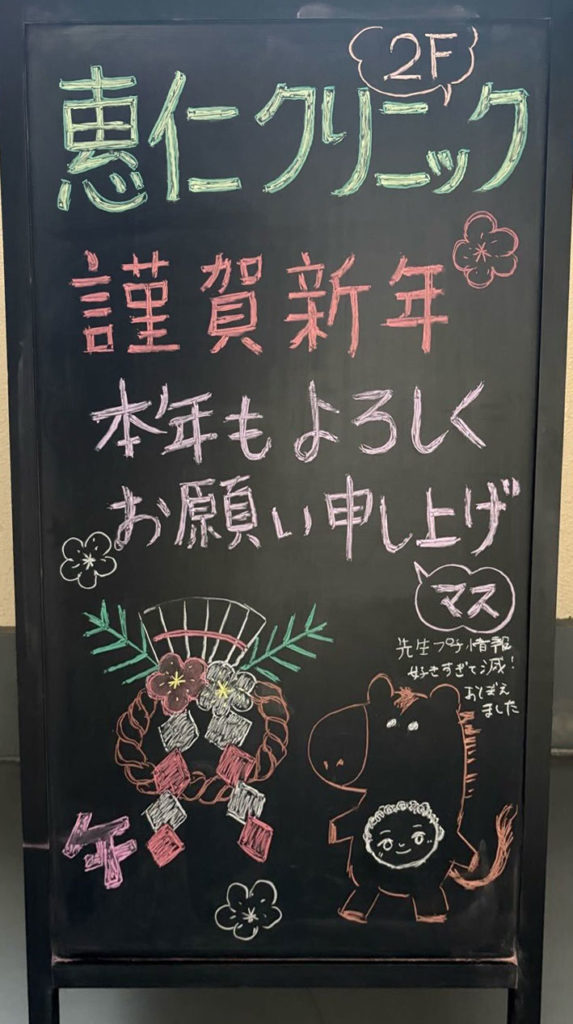 2F
恵仁クリニック
謹賀新年
本年もよろしく
お願い申し上げ
マス
先生プチ情報
好きすぎて滅!
おぼえ
ました
午